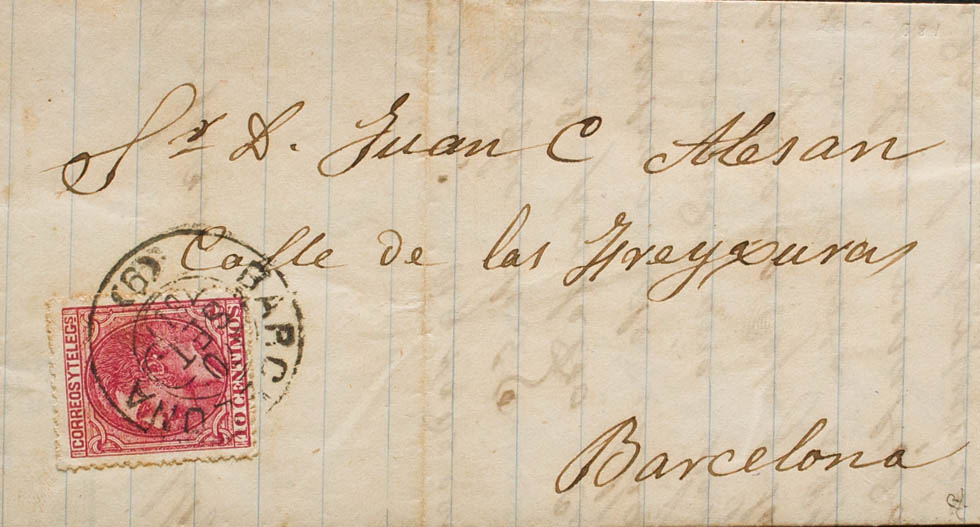 Sr D. Juan C Alesan
Calle de las Freyxuras
Barcelona
CORREOS Y TELEGS
10 CENTIMOS
BARCELONA
(6)